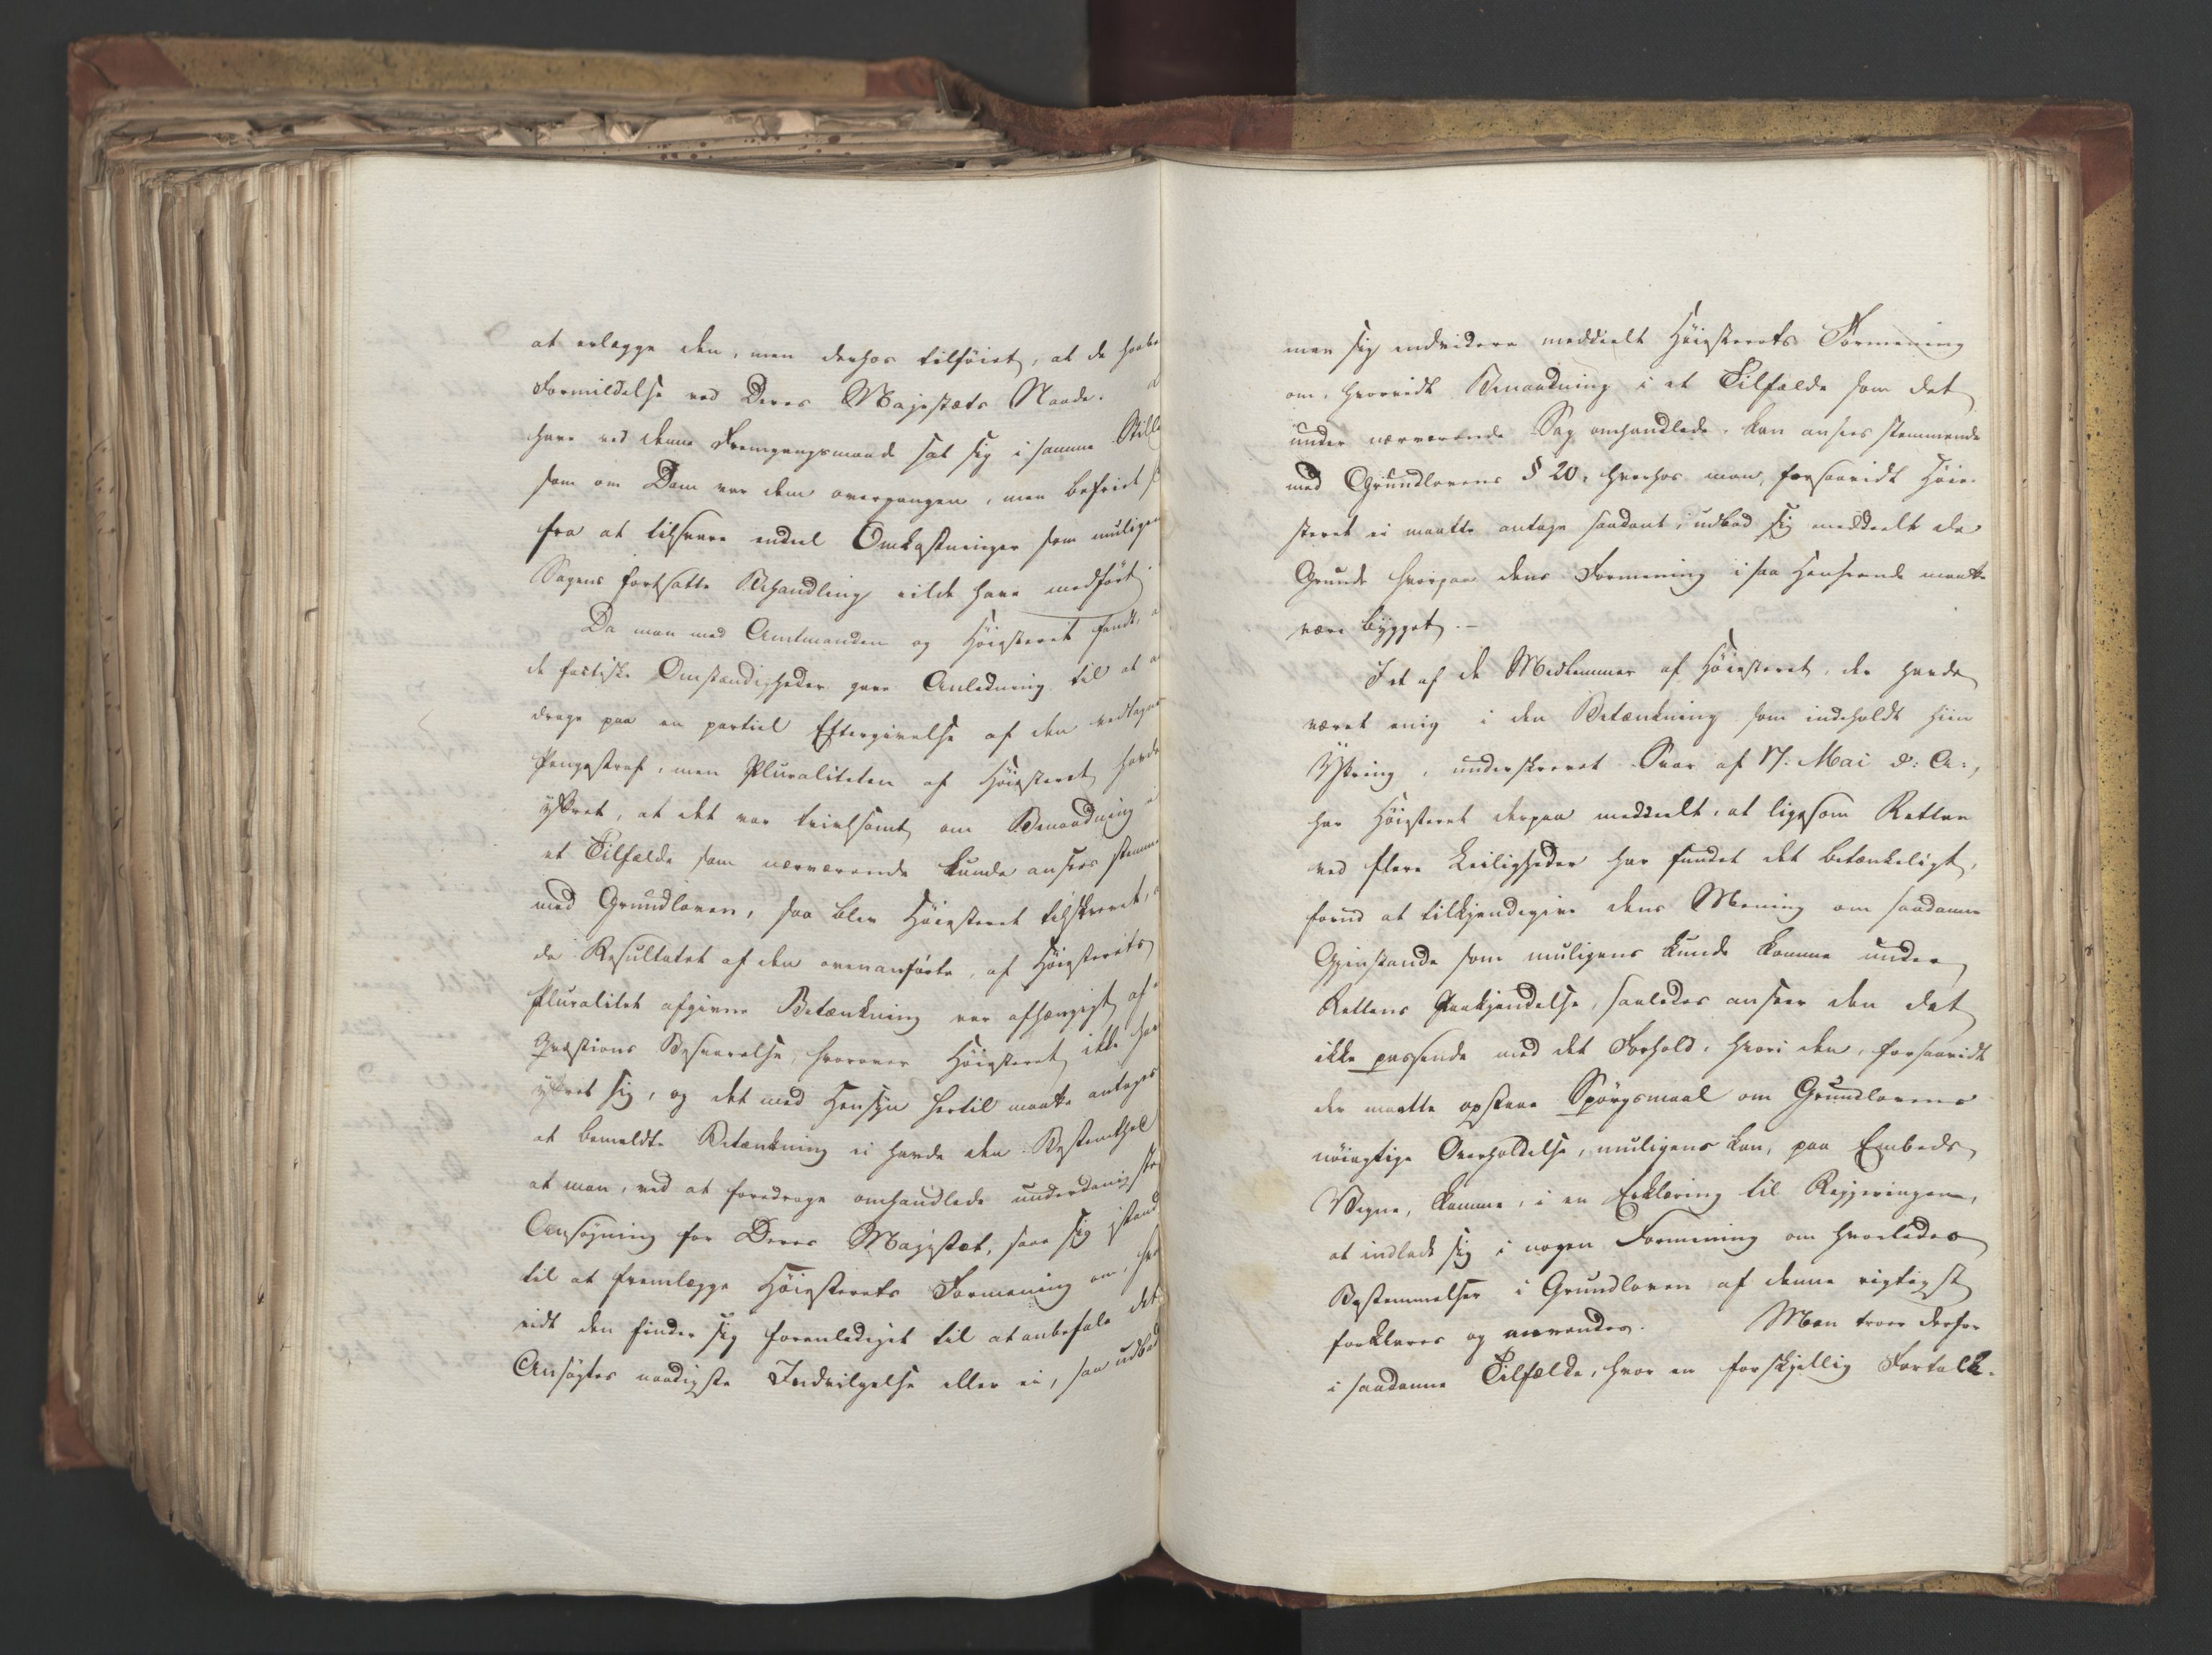 at erlægge den, men derhos tilføiet, at de haabe
Formildelse ved Deres Majestæts Naade.
have ved denne Fremgangsmaade sat sig i samme Still
som om Dom var dem overgangen, men befriet s
fra at tilsvare endeel Omkostninger som muligen
Sagens fortsatte Behandling vilde have medført.
Da man med Amtmanden og Høiesteret fandt, a
de factiske Omstændigheder gave Anledning til at a
drage paa en partiel Eftergivelse af den vedtagne
Pengestraf, men Pluraliteten af Høiesteret havde
yttret, at det var tvivlsomt om Benaadning i
et Tilfælde som nærværende kunde ansees stemme
med Grundloven, saa blev Høiesteret tilskrevet, a
da Resultatet af den ovenanførte, af Høiesterets
Pluralitet afgivne Betænkning var afhængigt af
Qvæstions Besvarelse, hvorover Høiesteret ikke hav
yttret sig, og det med Hensyn hertil maatte antages
at bemeldte Betænkning ei havde den Bestemthed
at man, ved at foredrage omhandlede underdanigste
Ansøgning for Deres Majestæt, saae sig istand
til at fremlægge Høiesterets Formening om, hvor
vidt den finder sig foranlediget til at anbefale det
Ansøgtes naadigste Indvilgelse eller ei, saa udbad
man sig endvidere meddeelt Høiesterets Formening
om, hvorvidt Benaadning i et Tilfælde som det
under nærværende Sag omhandlede, kan ansees stemmende
med Grundlovens § 20, hvorhos man, forsaavidt Høie-
steret ei maatte antage saadant, udbad sig meddeelt de
Grunde hvorpaa dens Formening i saa Henseende maatte
være bygget.-
I et af de Medlemmer af Høiesteret, der havde
været enig i den Betænkning som indeholdt hiin
Yttring, underskrevet Svar af 17. Mai d: A:,
har Høiesteret derpaa meddeelt, at ligesom Retten
ved flere Leiligheder har fundet det betænkeligt,
forud at tilkjendegive dens Mening om saadanne
Gjenstande som muligens kunde komme under
Rettens Paakjendelse, saaledes anseer den det
ikke passende med det Forhold, hvori den, forsaavidt
der maatte opstaae Spørgsmaal om Grundlovens
nøiagtige Overholdelse, muligens kan, paa Embeds
Vegne, komme, i en Erklæring til Regjeringen,
at indlade sig i nogen Formening om hvorledes
Bestemmelser i Grundloven af denne rigtigst
forklares og anvendes. Man troer derfor
i saadanne Tilfælde, hvor en forskjellig Fortolk-